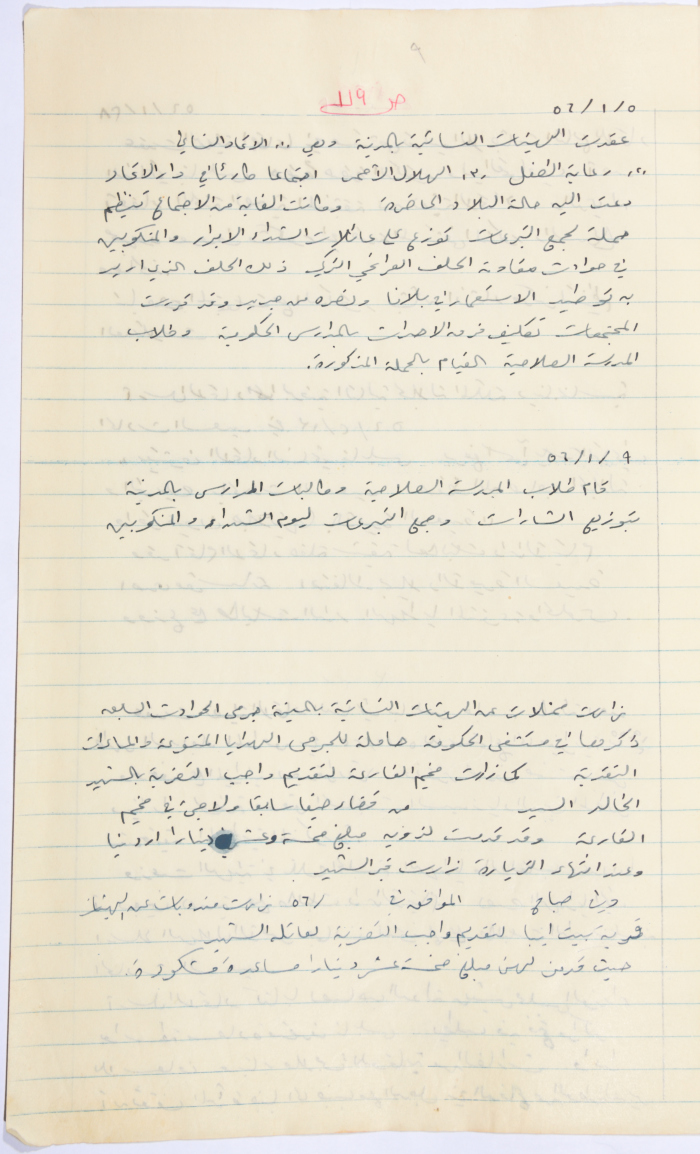 ٩
ص ١١٩
٥٦/١/٥
عقدت الهيئات النسائية بالمدينة وهي ١٠٠ الاتحاد النسائي
٢٠٠ رعاية الطفل ٣٠٠ الهلال الأحمر اجتماعا طارئا في دار الاتحاد
دعت اليه حالة البلاد الحاضرة وكانت الغاية من الاجتماع تنظيم
حملة لجمع التبرعات توزع على عائلات الشهداء الابرار والمنكوبين
في حوادث مقاومة الحلف العراقي التركي ذلك الحلف الذي اريد
به توطيد الاستعمار في بلادنا ونصره من جديد وقد قررت
المجتمعات تكليف فرق الاحداث بالمدارس الحكومية وطلاب
المدرسة الصلاحية القيام بالحملة المذكورة.
٥٦/١/٩
قام طلاب المدرسة الصلاحية وطالبات المدارس بالمدينة
بتوزيع الشارات وجمع التبرعات ليوم الشهداء والمنكوبين
زارت ممثلات عن الهيئات النسائية بالمدينة جرحى الحوادث السابق
ذكرها في مستشفى الحكومة حاملة للجرحى الهدايا المتنوعة والمساعدات
النقدية كما زارت مخيم الفارعة لتقديم واجب التعزية بالشهيد
الخالد السيد من قضاء حيفا سابقا ولاجئ في مخيم
الفارعة وقد قدمت لذويه مبلغ خمسة وعشرين دينارا اردنيا
وعند انتهاء الزيارة زارت قبر الشهيد
وفي صباح الموافق في /٥٦ زارت مندوبات عن الهيئات
قرية بيت ايبا لتقديم واجب التعزية لعائلة الشهيد
حيث قدمن لهن مبلغ خمسة عشر دينارا مساعدة مشكورة